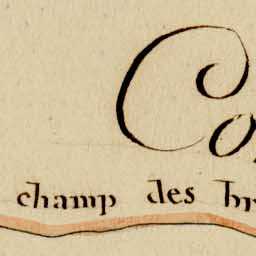 Co
champ des br